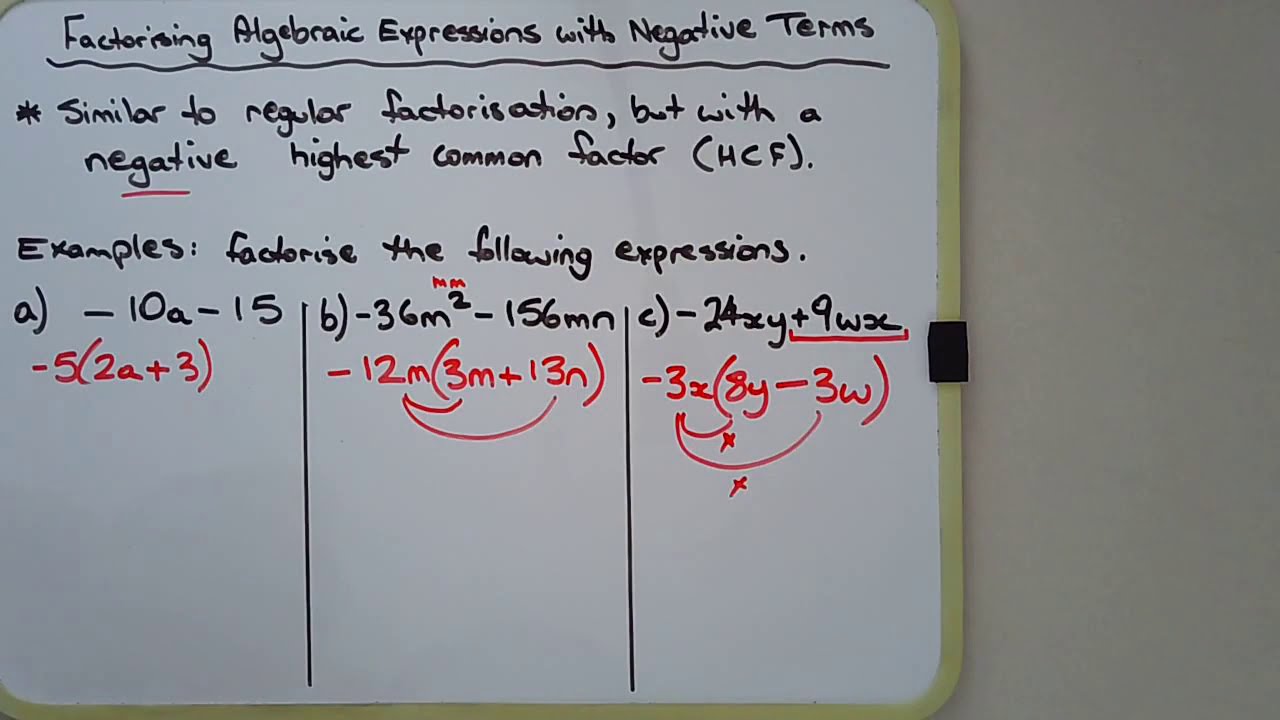 Factorising Algebraic Expressions with Negative Terms
* Similar to regular factorisation, but with a
negative highest common factor (HCF).
Examples: factorise the following expressions.
a) -10a-15
-5(2a+3)
mm
b) -36m²-156mn
-12m(3m+13n)
c) -24xy+9wx
-3x(8y-3w)
x
x